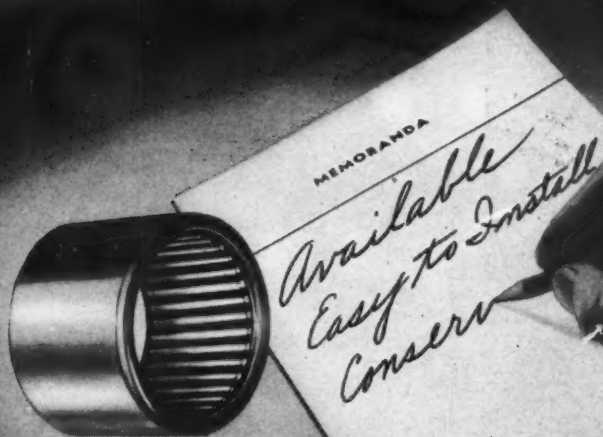 MEMORANDA
Available
Easy to Install
Conserv